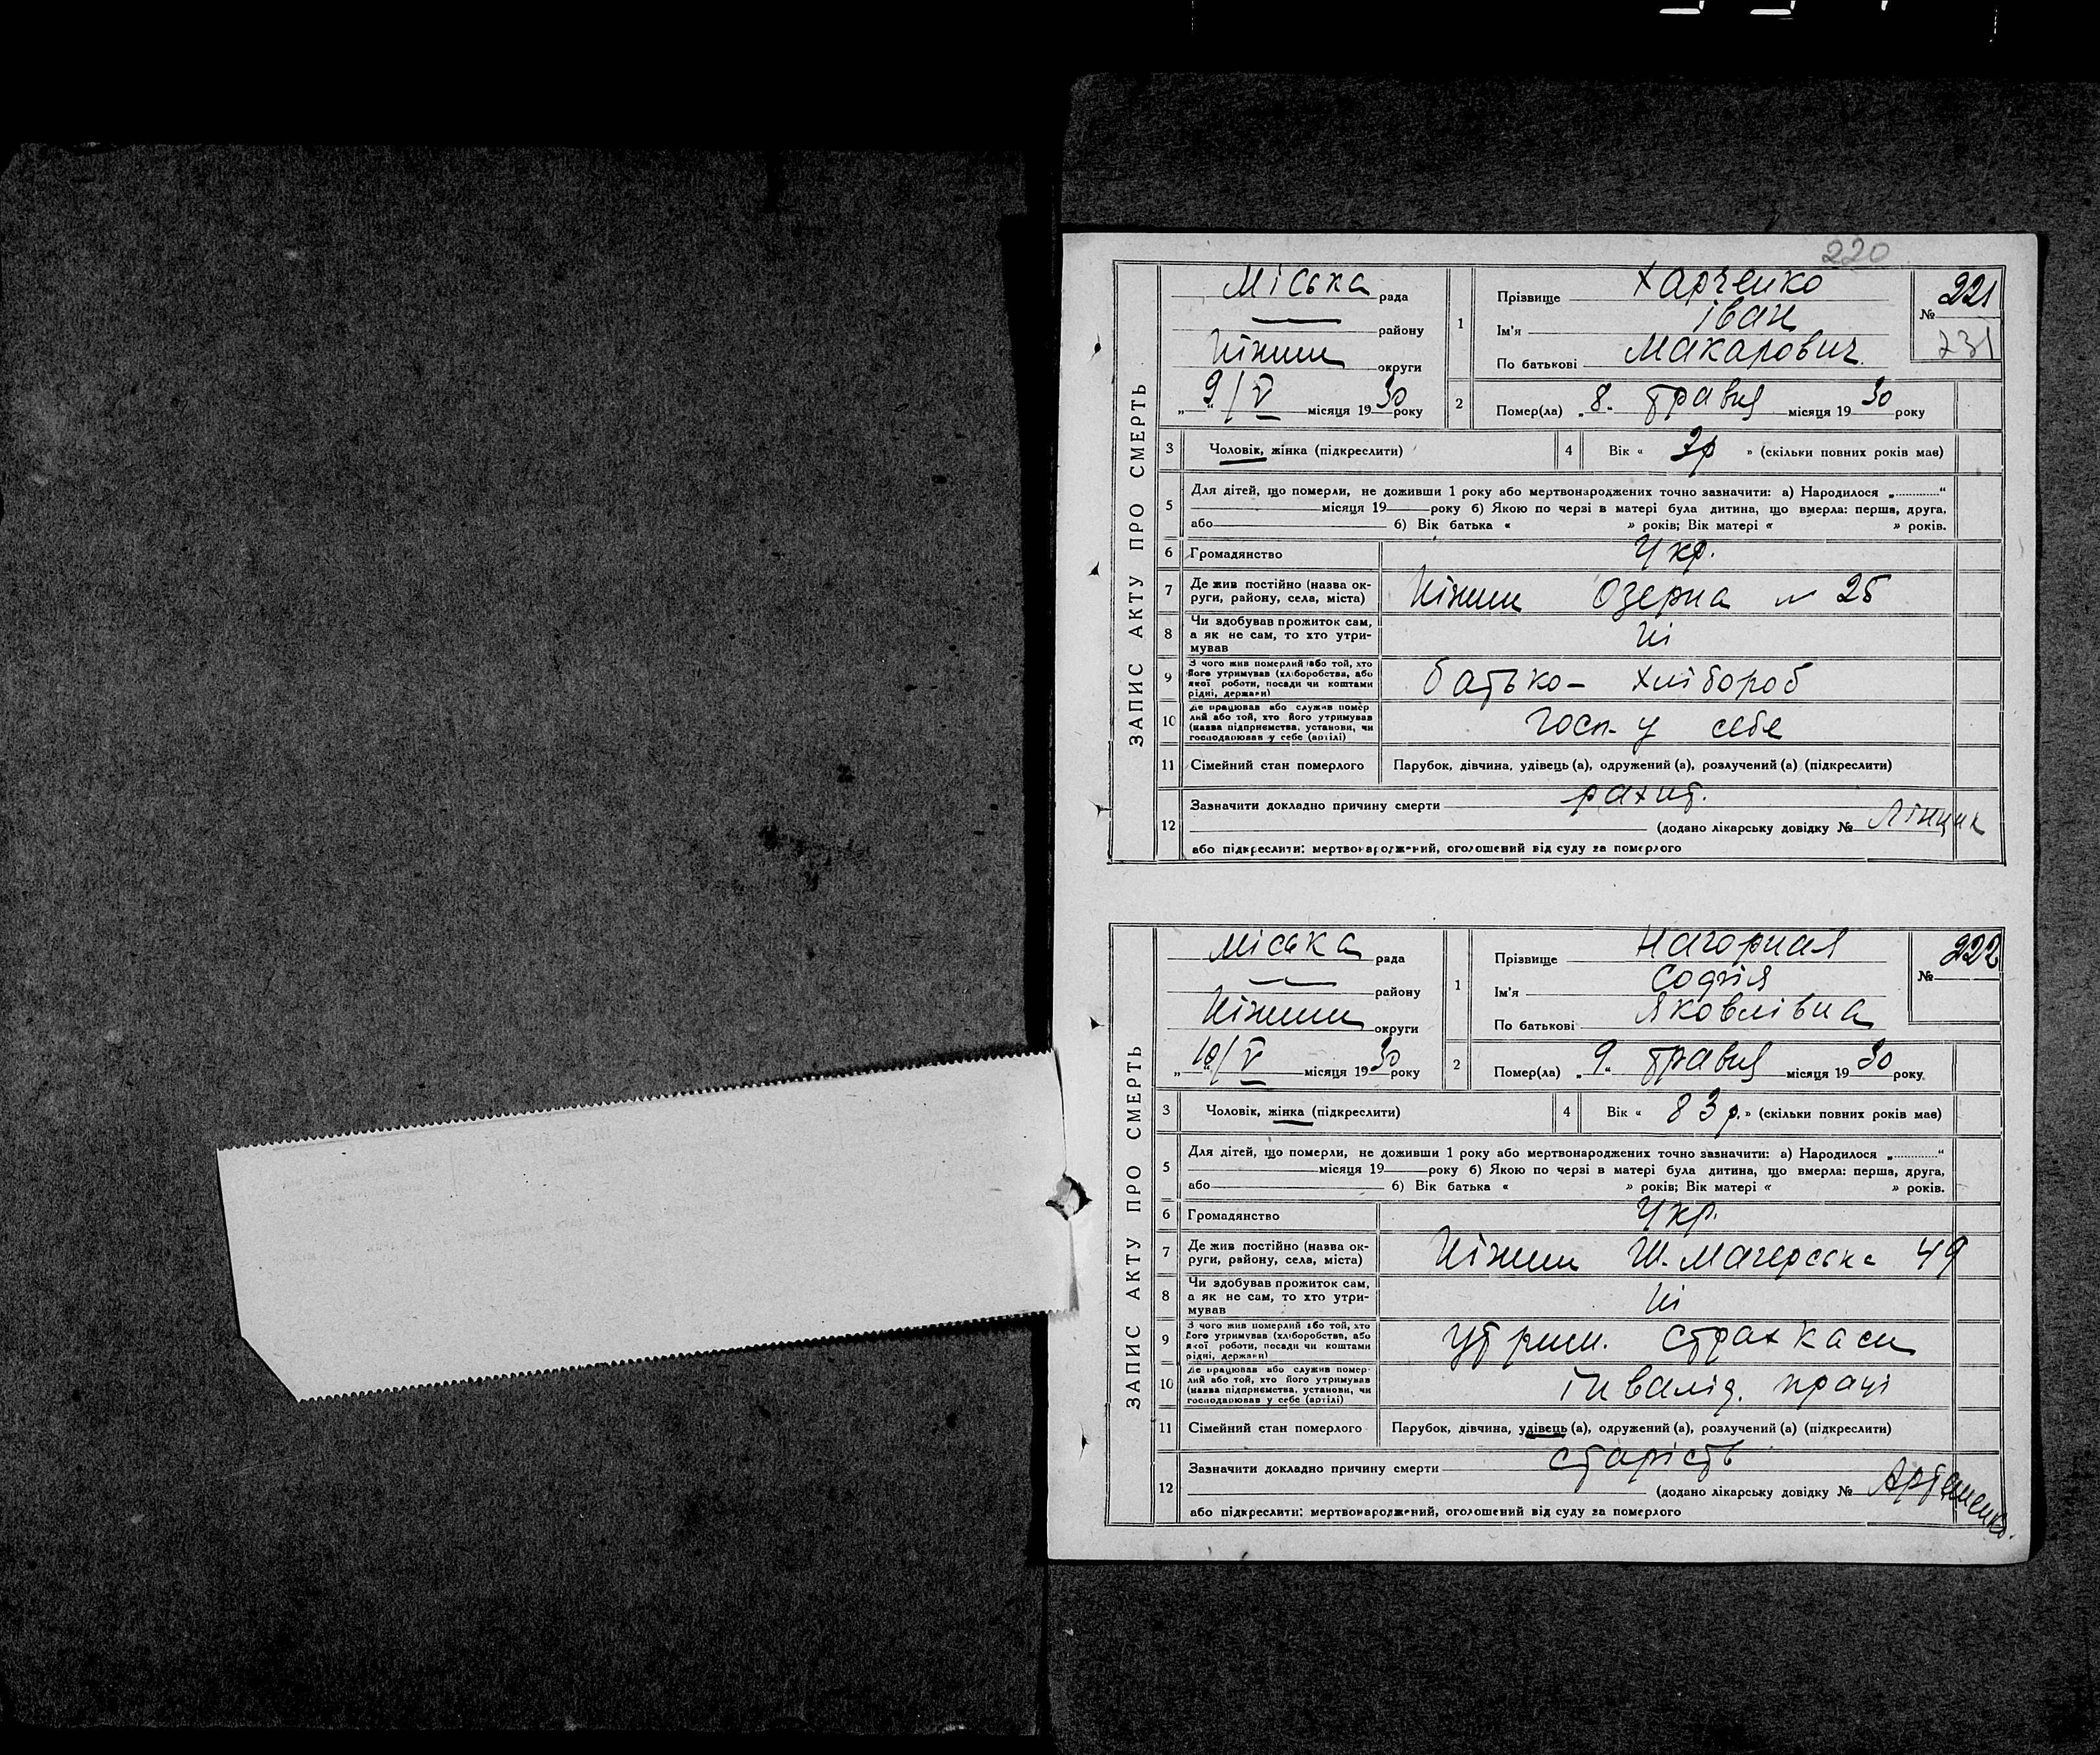 220
ЗАПИС АКТУ ПРО СМЕРТЬ
Міська рада
району
Ніжин округи
„ 9/V “ місяця 1930 року
1
Прізвище Харченко
Ім'я Іван
По батькові Макарович
№ 221
231
2 Помер(ла) „ 8 “ травня місяця 1930 року
3 Чоловік, жінка (підкреслити)
4 Вік « 2р » (скільки повних років має)
5 Для дітей, що померли, не доживши 1 року або мертвонароджених точно зазначити: а) Народилося „............“
місяця 19 року б) Якою по черзі в матері була дитина, що вмерла: перша, друга,
або б) Вік батька « » років; Вік матері « » років.
6 Громадянство Укр.
7 Де жив постійно (назва ок-
руги, району, села, міста) Ніжин Озерна № 25
8 Чи здобував прожиток сам,
а як не сам, то хто утри-
мував Ні
9 З чого жив померлий або той, хто
його утримував (хліборобства, або
якої роботи, посади чи коштами
рідні, держави) батько – хлібороб
10 Де працював або служив помер
лий або той, хто його утримував
(назва підприємства, установи, чи
господарював у себе (артілі) Госп. у себе
11 Сімейний стан померлого Парубок, дівчина, удівець (а), одружений (а), розлучений (а) (підкреслити)
12 Зазначити докладно причину смерти рахит.
(додано лікарську довідку №
або підкреслити: мертвонароджений, оголошений від суду за померлого
ЗАПИС АКТУ ПРО СМЕРТЬ
Міська рада
району
Ніжин округи
„ 10/V “ місяця 1930 року
1
Прізвище Нагорная
Ім'я Софія
По батькові Яковлівна
№ 222
2 Помер(ла) „ 9 “ травня місяця 1930 року
3 Чоловік, жінка (підкреслити)
4 Вік « 83 р. » (скільки повних років має)
5 Для дітей, що померли, не доживши 1 року або мертвонароджених точно зазначити: а) Народилося „............“
місяця 19 року б) Якою по черзі в матері була дитина, що вмерла: перша, друга,
або б) Вік батька « » років; Вік матері « » років.
6 Громадянство Укр.
7 Де жив постійно (назва ок-
руги, району, села, міста) Ніжин Ш. Магерська 49
8 Чи здобував прожиток сам,
а як не сам, то хто утри-
мував Ні
9 З чого жив померлий або той, хто
його утримував (хліборобства, або
якої роботи, посади чи коштами
рідні, держави) утрим. страхкаси
10 Де працював або служив помер-
лий або той, хто його утримував
(назва підприємства, установи, чи
господарював у себе (артілі) Інвалід. праці
11 Сімейний стан померлого Парубок, дівчина, удівець (а), одружений (а), розлучений (а) (підкреслити)
12 Зазначити докладно причину смерти старість
(додано лікарську довідку № Артеменко.
або підкреслити: мертвонароджений, оголошений від суду за померлого